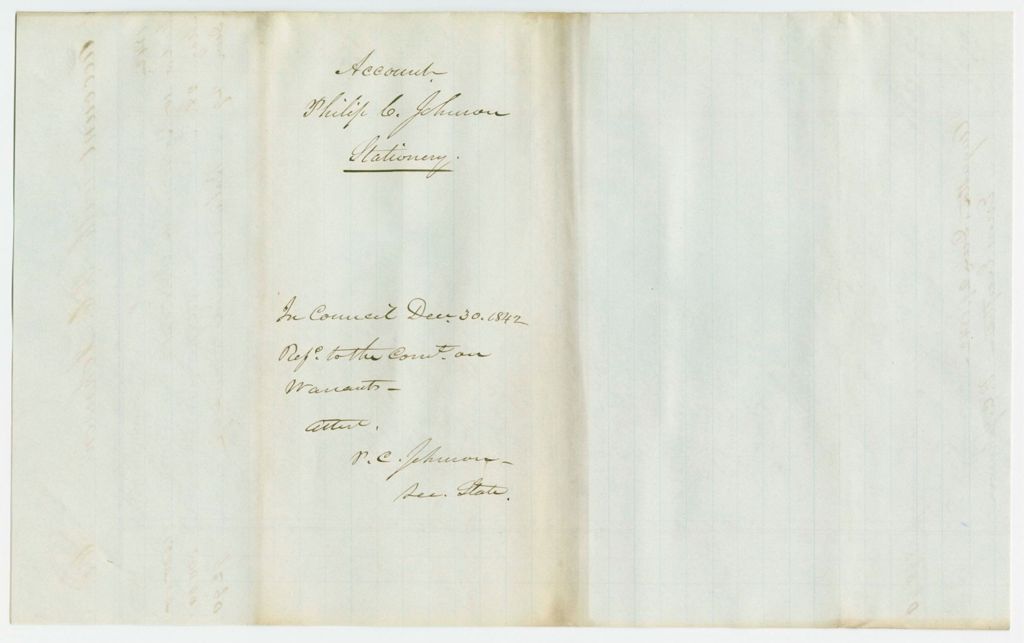 Account
Philip C. Johnson
Stationery.
In Council Dec. 30. 1842
Refd. to the Comt. on
Warrants –
Attest.
P. C. Johnson –
Sec. State.